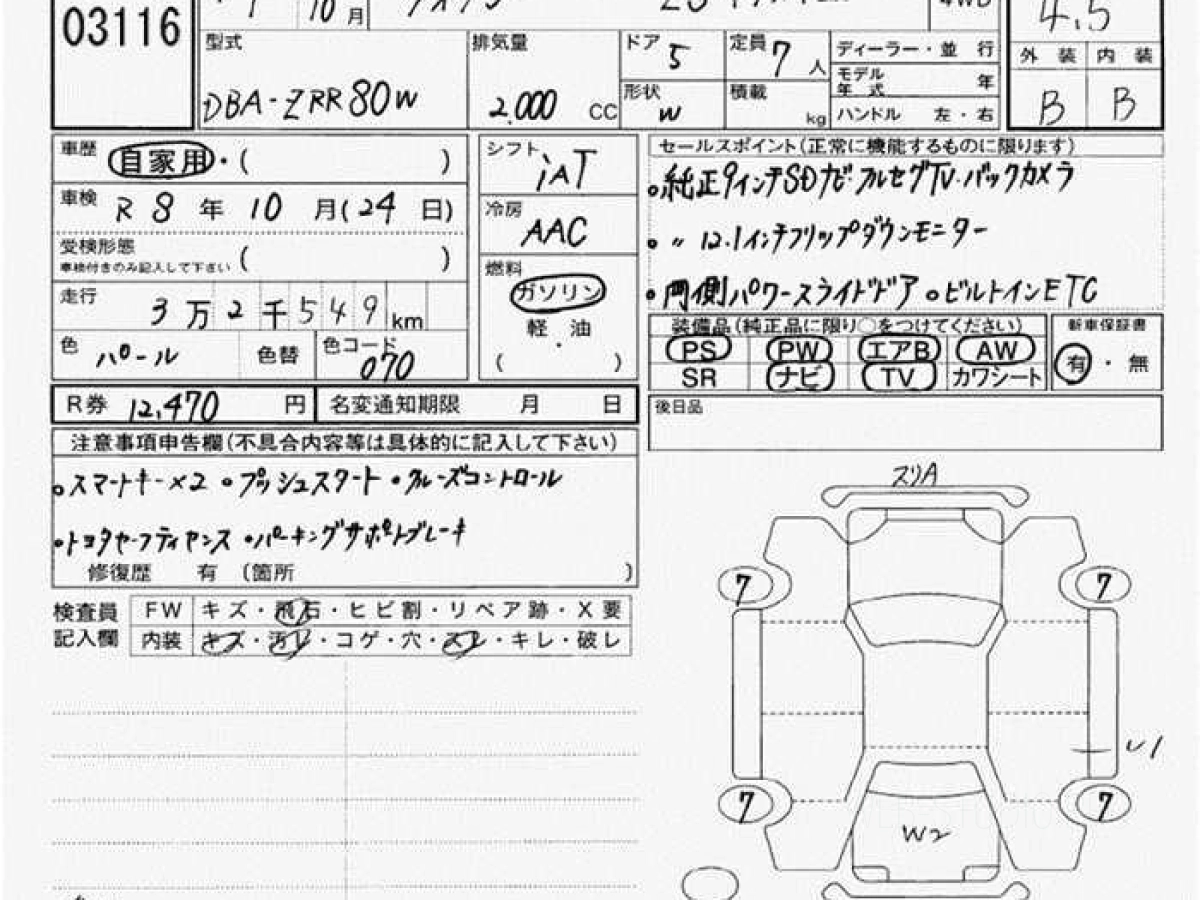 03116
10月
4.5
型式 DBA-ZRR80W
排気量 2.000 CC
ドア 5
形状 W
定員 7 人
積載 kg
ディーラー・並 行
モデル年式 年
ハンドル 左・右
外 装 内 装
B B
車歴 自家用・( )
車検 R 8 年 10 月(24 日)
受検形態
車検付きのみ記入して下さい ( )
走行 3 万 2 千 5 4 9 km
色 パール 色替 色コード 070
シフト iAT
冷房 AAC
燃料
ガソリン
軽・油
( )
セールスポイント(正常に機能するものに限ります)
。純正9インチSDナビ・フルセグTV・バックカメラ
。〃 12.1インチフリップダウンモニター
・両側パワースライドドア 。ビルトインETC
装備品(純正品に限り○をつけてください)
PS PW エアB AW
SR ナビ TV カワシート
新車保証書
有・無
R券 12,470 円 名変通知期限 月 日
後日品
注意事項申告欄(不具合内容等は具体的に記入して下さい)
。スマートキー×2 。プッシュスタート ・クルーズコントロール
・トヨタセーフティセンス ・パーキングサポートブレーキ
修復歴 有 (箇所 )
検査員記入欄
FW キズ・飛石・ヒビ割・リペア跡・X要
内装 キズ・汚レ・コゲ・穴・スレ・キレ・破レ
スリA
7 7
7 7
W2